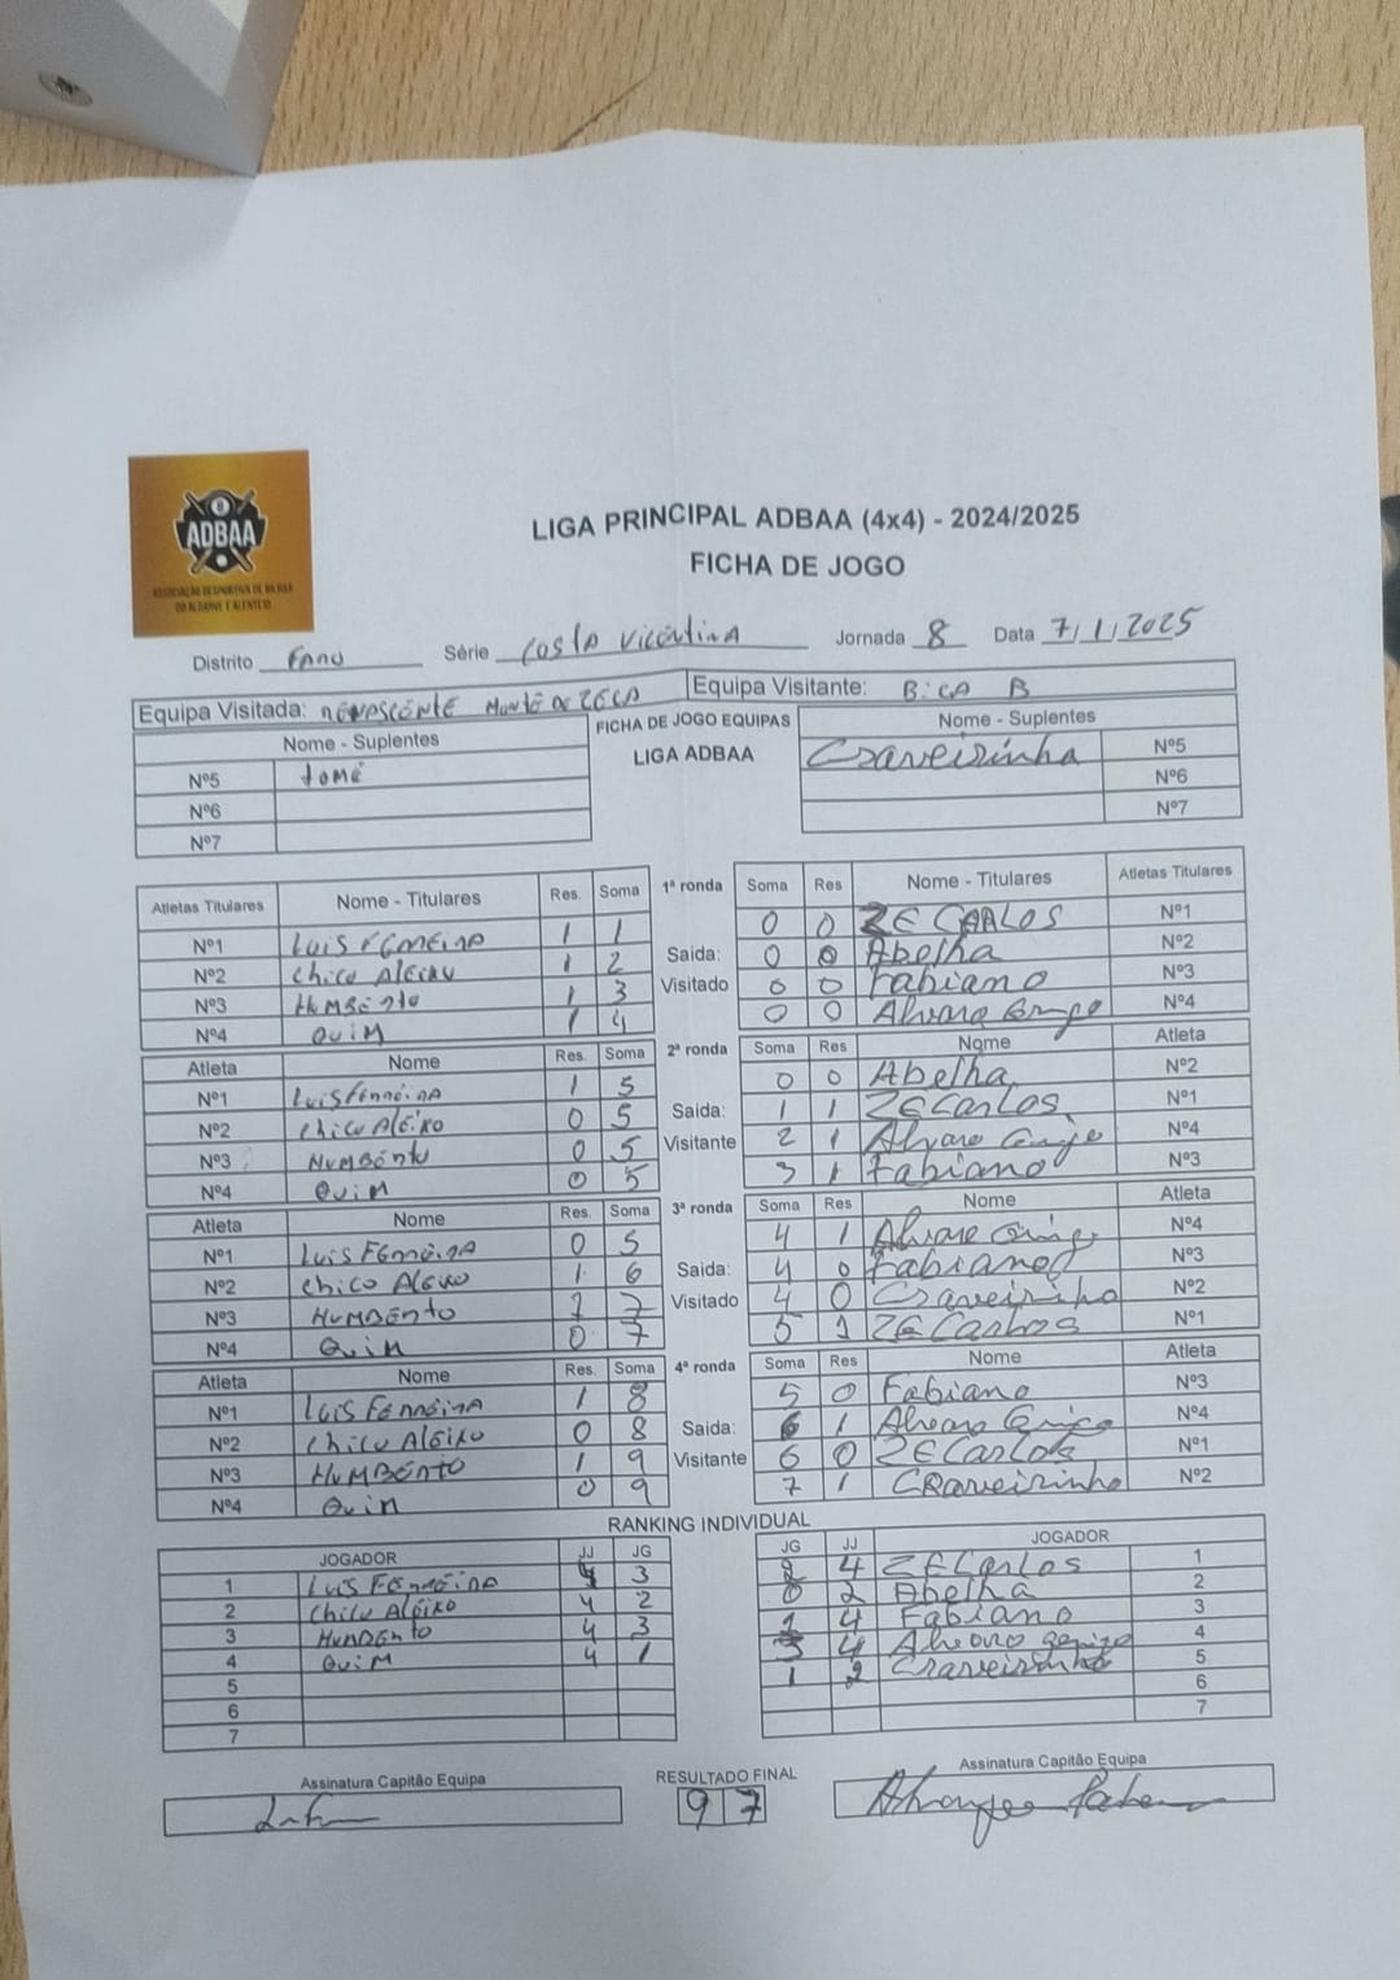 ADBAA
ASSOCIAÇÃO DESPORTIVA DE BILHAR
DO ALGARVE E ALENTEJO
LIGA PRINCIPAL ADBAA (4x4) - 2024/2025
FICHA DE JOGO
Distrito Faro Série Costa Vicentina Jornada 8 Data 7/1/2025
Equipa Visitada: Renascente Monte da Zeca Equipa Visitante: Bica B
Nome - Suplentes FICHA DE JOGO EQUIPAS Nome - Suplentes
Nº5 tomé LIGA ADBAA Craveirinha Nº5
Nº6 Nº6
Nº7 Nº7
Atletas Titulares Nome - Titulares Res. Soma 1ª ronda Soma Res Nome - Titulares Atletas Titulares
Nº1 Luis Ferreira 1 1 0 0 ZE CARLOS Nº1
Nº2 Chico Aleixo 1 2 Saida: 0 0 Abelha Nº2
Nº3 Humberto 1 3 Visitado 0 0 Fabiano Nº3
Nº4 Quim 1 4 0 0 Alvaro Nº4
Atleta Nome Res. Soma 2ª ronda Soma Res Nome Atleta
Nº1 Luis Ferreira 1 5 0 0 Abelha Nº2
Nº2 Chico Aleixo 0 5 Saida: 1 1 ZE Carlos Nº1
Nº3 Humberto 0 5 Visitante 2 1 Alvaro Nº4
Nº4 Quim 0 5 3 1 Fabiano Nº3
Atleta Nome Res. Soma 3ª ronda Soma Res Nome Atleta
Nº1 Luis Ferreira 0 5 4 1 Alvaro Nº4
Nº2 Chico Aleixo 1 6 Saida: 4 0 Fabiano Nº3
Nº3 Humberto 1 7 Visitado 4 0 Craveirinha Nº2
Nº4 Quim 0 7 5 1 ZE Carlos Nº1
Atleta Nome Res. Soma 4ª ronda Soma Res Nome Atleta
Nº1 Luis Ferreira 1 8 5 0 Fabiano Nº3
Nº2 Chico Aleixo 0 8 Saida: 6 1 Alvaro Nº4
Nº3 Humberto 1 9 Visitante 6 0 ZE Carlos Nº1
Nº4 Quim 0 9 7 1 Craveirinha Nº2
RANKING INDIVIDUAL
JOGADOR JJ JG JG JJ JOGADOR
1 Luis Ferreira 4 3 2 4 ZE Carlos 1
2 Chico Aleixo 4 2 0 2 Abelha 2
3 Humberto 4 3 1 4 Fabiano 3
4 Quim 4 1 3 4 Alvaro 4
5 1 2 Craveirinha 5
6 6
7 7
Assinatura Capitão Equipa RESULTADO FINAL Assinatura Capitão Equipa
9 7